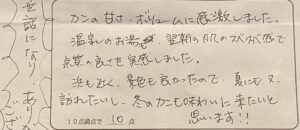 カニの甘さ・ボリュームに感激しました。
温泉のお湯も、翌朝の肌のスベスベ感で
泉質の良さを実感しました。
浜も近く、景色も良かったので、夏にも又
訪れたいし、冬のカニも味わいに来たいと
思います!!
10点満点で 10 点
世話になり